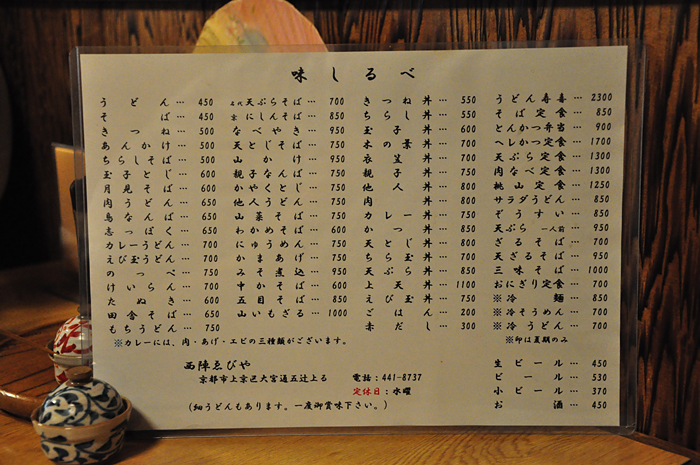 味しるべ
うどん… 450
そば… 450
きつね… 500
あんかけ… 500
ちらしそば… 500
玉子とじ… 600
月見そば… 600
肉うどん… 650
鳥なんば… 650
志っぽく… 650
カレーうどん… 700
えび玉うどん… 700
のっぺ… 750
けいらん… 700
たぬき… 600
田舎そば… 650
もちうどん… 750
名代天ぷらそば… 700
京にしんそば… 800
なべやき… 900
天とじそば… 750
山かけ… 950
親子なんば… 750
かやくとじ… 750
他人うどん… 750
山菜そば… 750
わかめそば… 600
にゅうめん… 750
かまあげ… 750
みそ煮込… 950
中かそば… 600
五目そば… 850
山いもざる… 1000
きつね丼… 550
ちらし丼… 550
玉子丼… 600
木の葉丼… 700
衣笠丼… 700
親子丼… 750
他人丼… 800
肉丼… 800
カレー丼… 750
かつ丼… 850
天とじ丼… 800
ちら玉丼… 700
天ぷら丼… 850
上天丼… 1100
えび玉丼… 750
ごはん… 200
赤だし… 300
うどん寿喜… 2300
そば定食… 950
とんかつ弁当… 900
ヘレかつ定食… 1700
天ぷら定食… 1300
肉なべ定食… 1300
桃山定食… 1250
サラダうどん… 850
ぞうすい… 850
天ぷら一人前… 950
ざるそば… 700
天ざるそば… 950
三味そば… 1000
おにぎり定食… 700
※冷麺… 850
※冷そうめん… 700
※冷うどん… 700
※印は夏期のみ
※カレーには、肉・あげ・エビの三種類がございます。
西陣ゑびや
京都市上京区大宮通五辻上る 電話：441-8737
定休日：水曜
（細うどんもあります。一度御賞味下さい。）
生ビール… 450
ビール… 530
小ビール… 370
お酒… 450